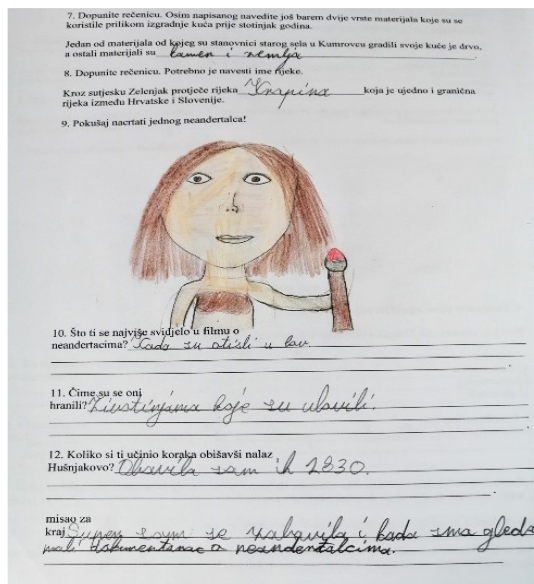 7. Dopunite rečenicu. Osim napisanog navedite još barem dvije vrste materijala koje su se
koristile prilikom izgradnje kuća prije stotinjak godina.
Jedan od materijala od kojeg su stanovnici starog sela u Kumrovcu gradili svoje kuće je drvo,
a ostali materijali su kamen i zemlja
8. Dopunite rečenicu. Potrebno je navesti ime rijeke.
Kroz sutjesku Zelenjak protječe rijeka Krapina koja je ujedno i granična
rijeka između Hrvatske i Slovenije.
9. Pokušaj nacrtati jednog neandertalca!
10. Što ti se najviše svidjelo u filmu o
neandertacima? Kada su otišli u lov.
11. Čime su se oni
hranili? Životinjama koje su ulovili.
12. Koliko si ti učinio koraka obišavši nalaz
Hušnjakovo? Obavila sam ih 2830.
misao za
kraj Super sam se zabavila i kada smo gleda
mali dokumentarac o neandertalcima.